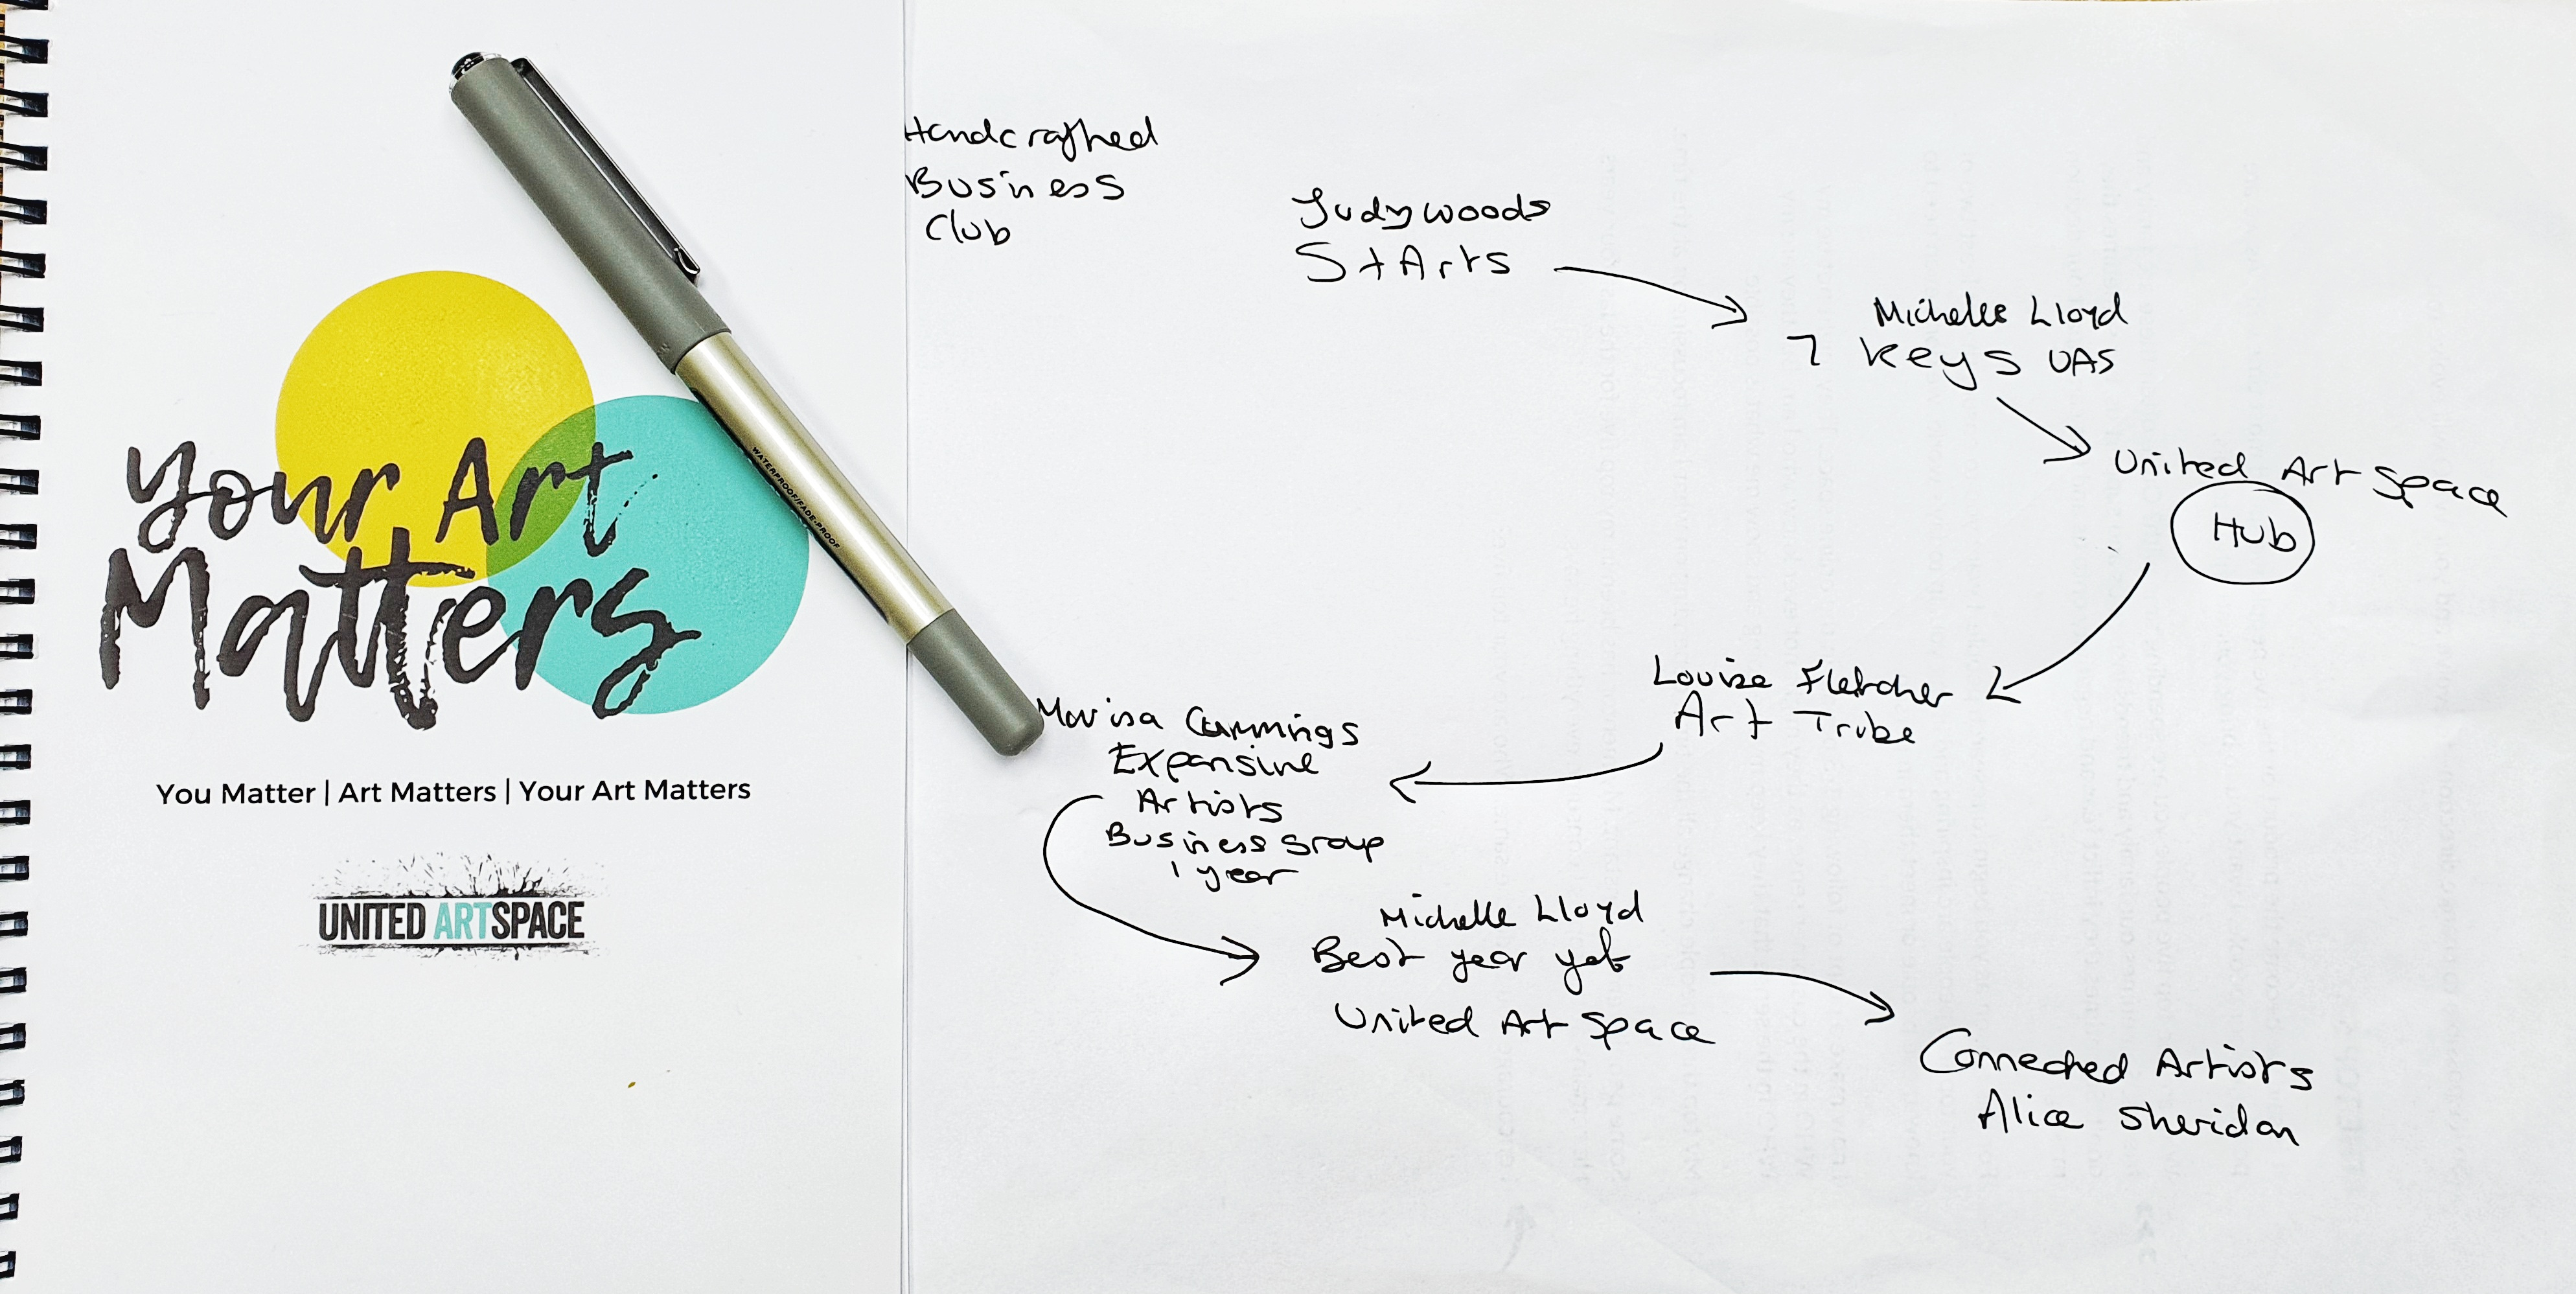 Your Art
Matters
You Matter | Art Matters | Your Art Matters
UNITED ARTSPACE
WATERPROOF/FADE-PROOF
Handcrafted
Business
Club
Judy Woods
StArts
Michelle Lloyd
7 Keys UAS
United Art Space
Hub
Louise Fletcher
Art Tribe
Marisa Cummings
Expansive
Artists
Business Group
1 year
Michelle Lloyd
Best year yet
United Art Space
Connected Artists
Alice Sheridan